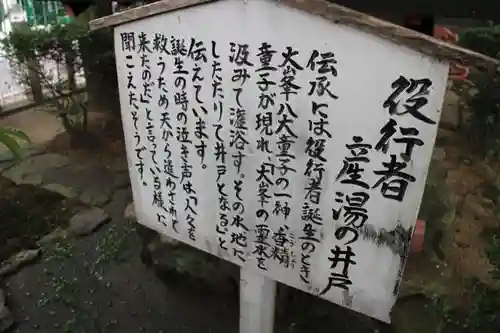 役行者
産湯の井戸
伝承には役行者誕生のとき
大峯八大童子の一神、香精
童子が現れ、「大峯の霊水を
汲みて灌浴す。その水地に
したたりて井戸となる」と
伝えています。
誕生の時の泣き声は「人々を
救うため天から遣わされて
来たのだ」と言っている様に
聞こえたそうです。